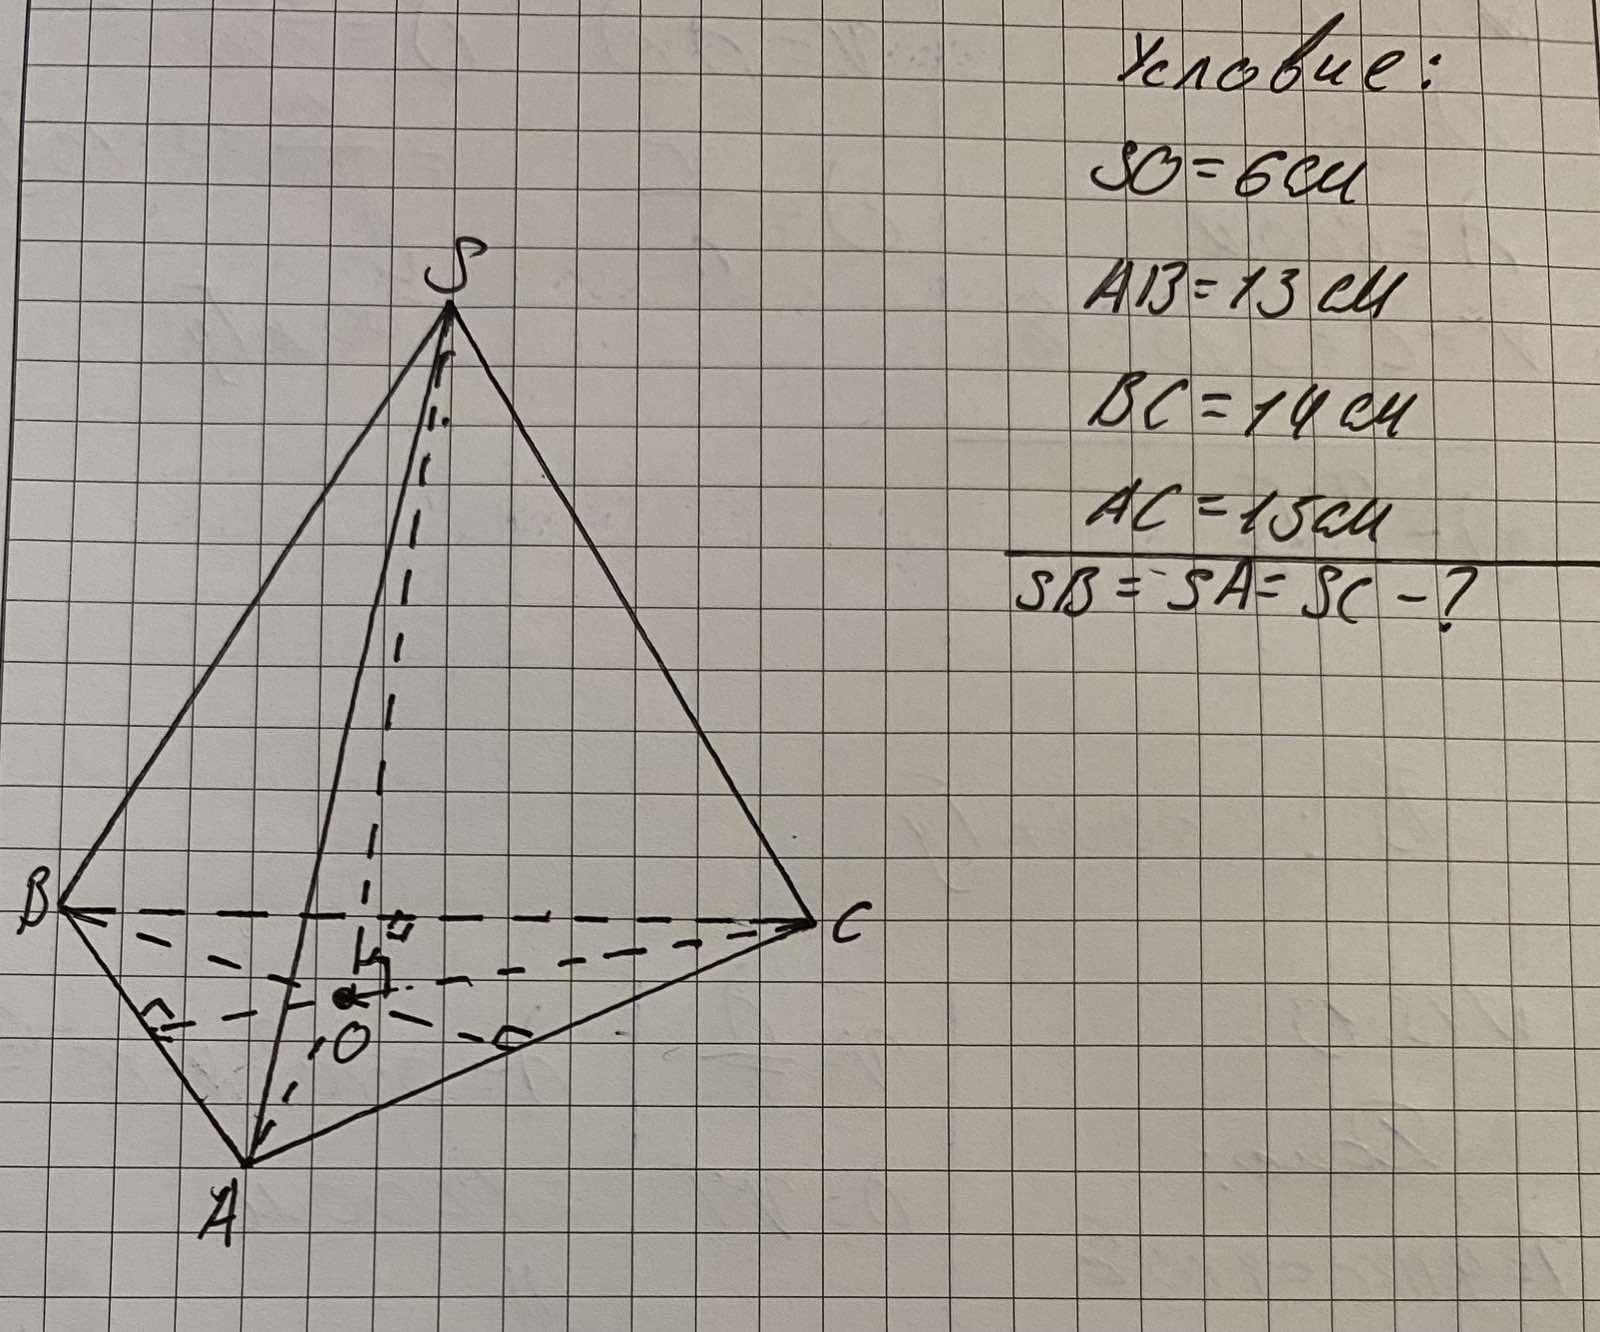 Условие:
SO = 6 см
AB = 13 см
BC = 14 см
AC = 15 см
SB = SA = SC - ?
S
B
C
O
A